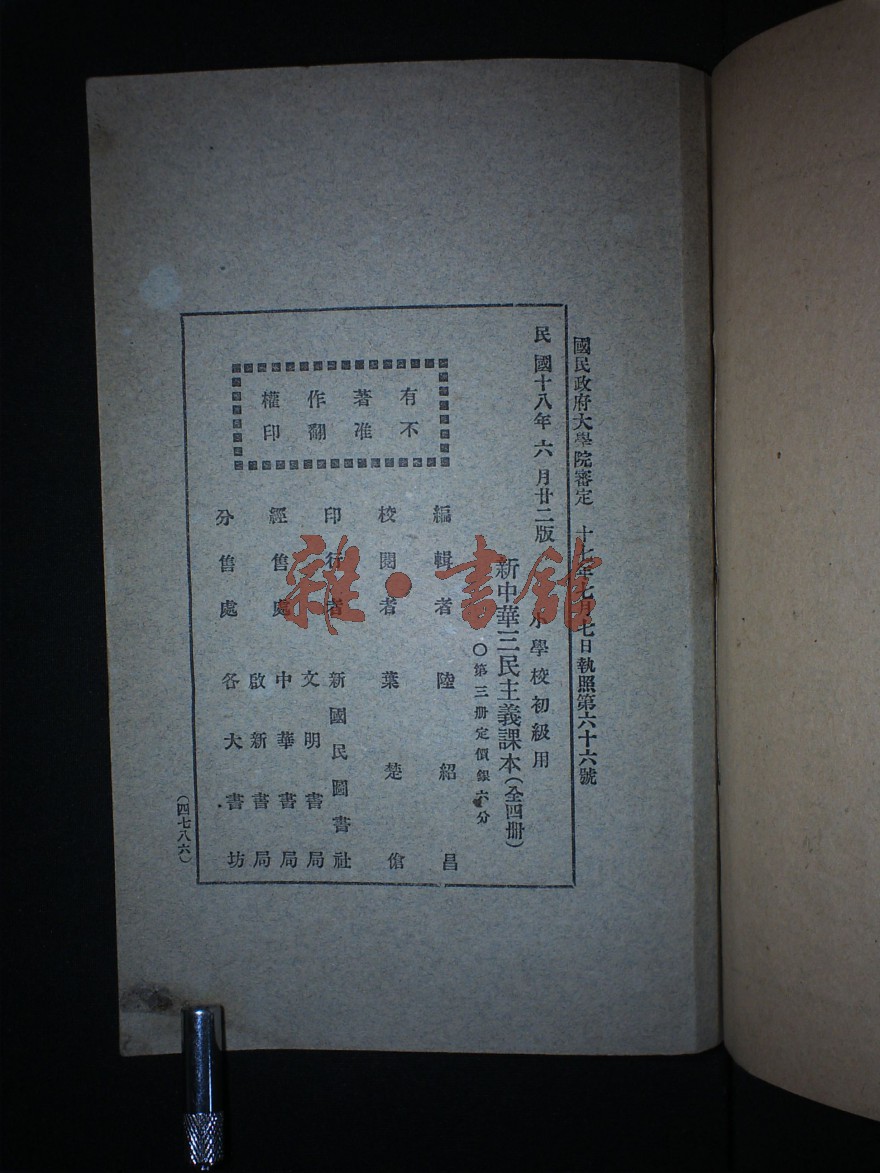 國民政府大學院審定　十七年七月七日執照第六十六號
民國十八年六月廿二版
小學校初級用
新中華三民主義課本(全四册)
〇第三册定價銀六分
有著作權
不准翻印
編輯者　陸紹昌
校閱者　葉楚傖
印行者　新國民圖書社
文明書局
經售處　中華書局
啟新書局
分售處　各大書坊
(四七八六)
雜·書館